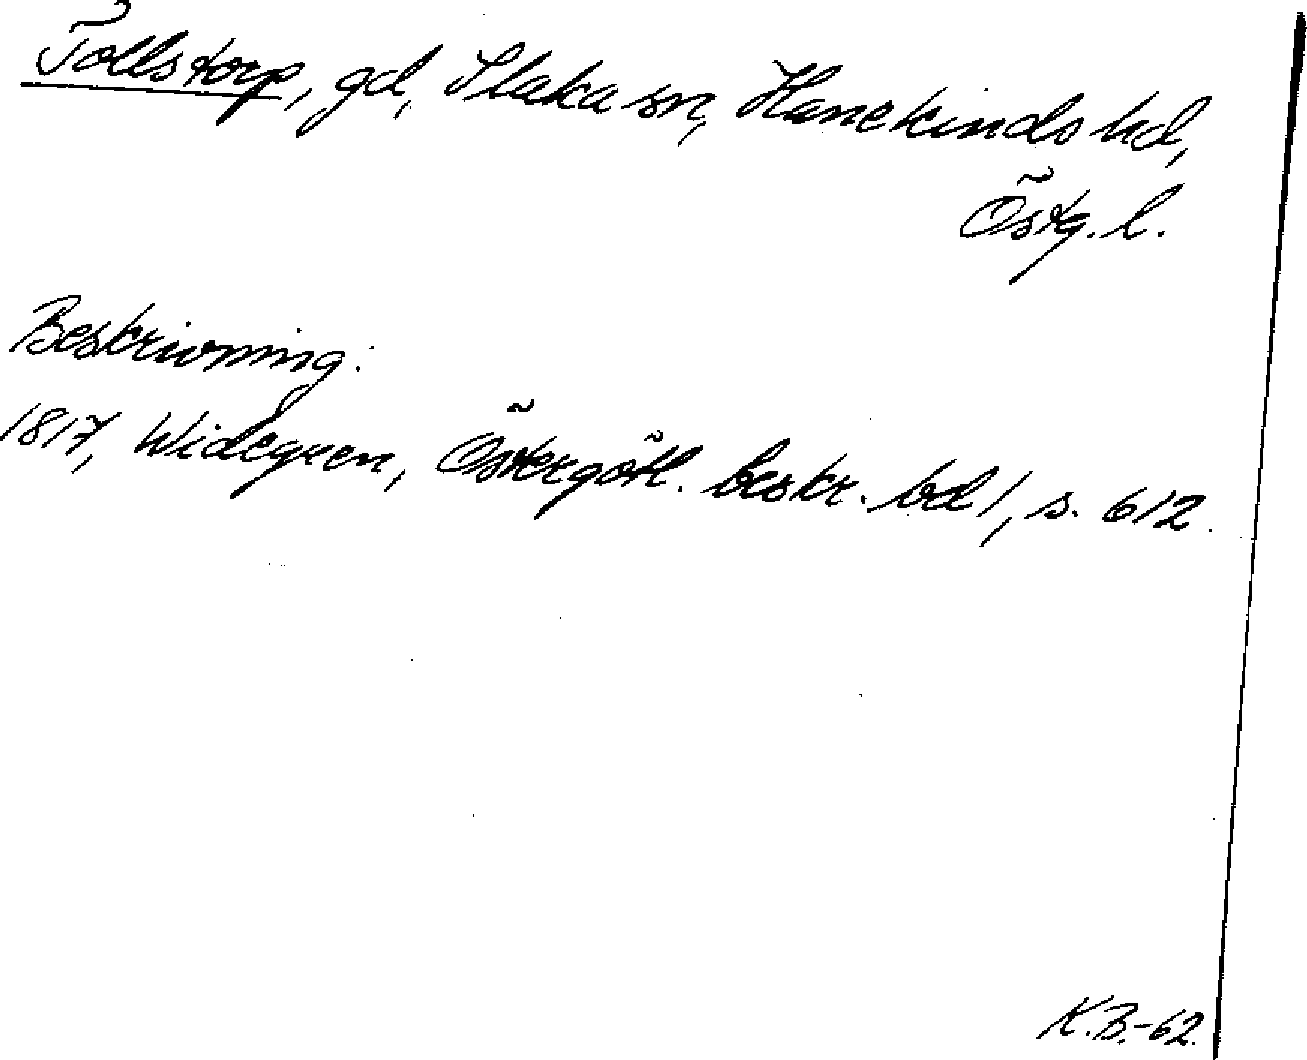 Tollstorp, gd, Slaka sn, Hanekinds hd,
Östg. l.
Beskrivning:
1817, Widegren, Östergötl. beskr. bd 1, s. 612.
K.B.-62.